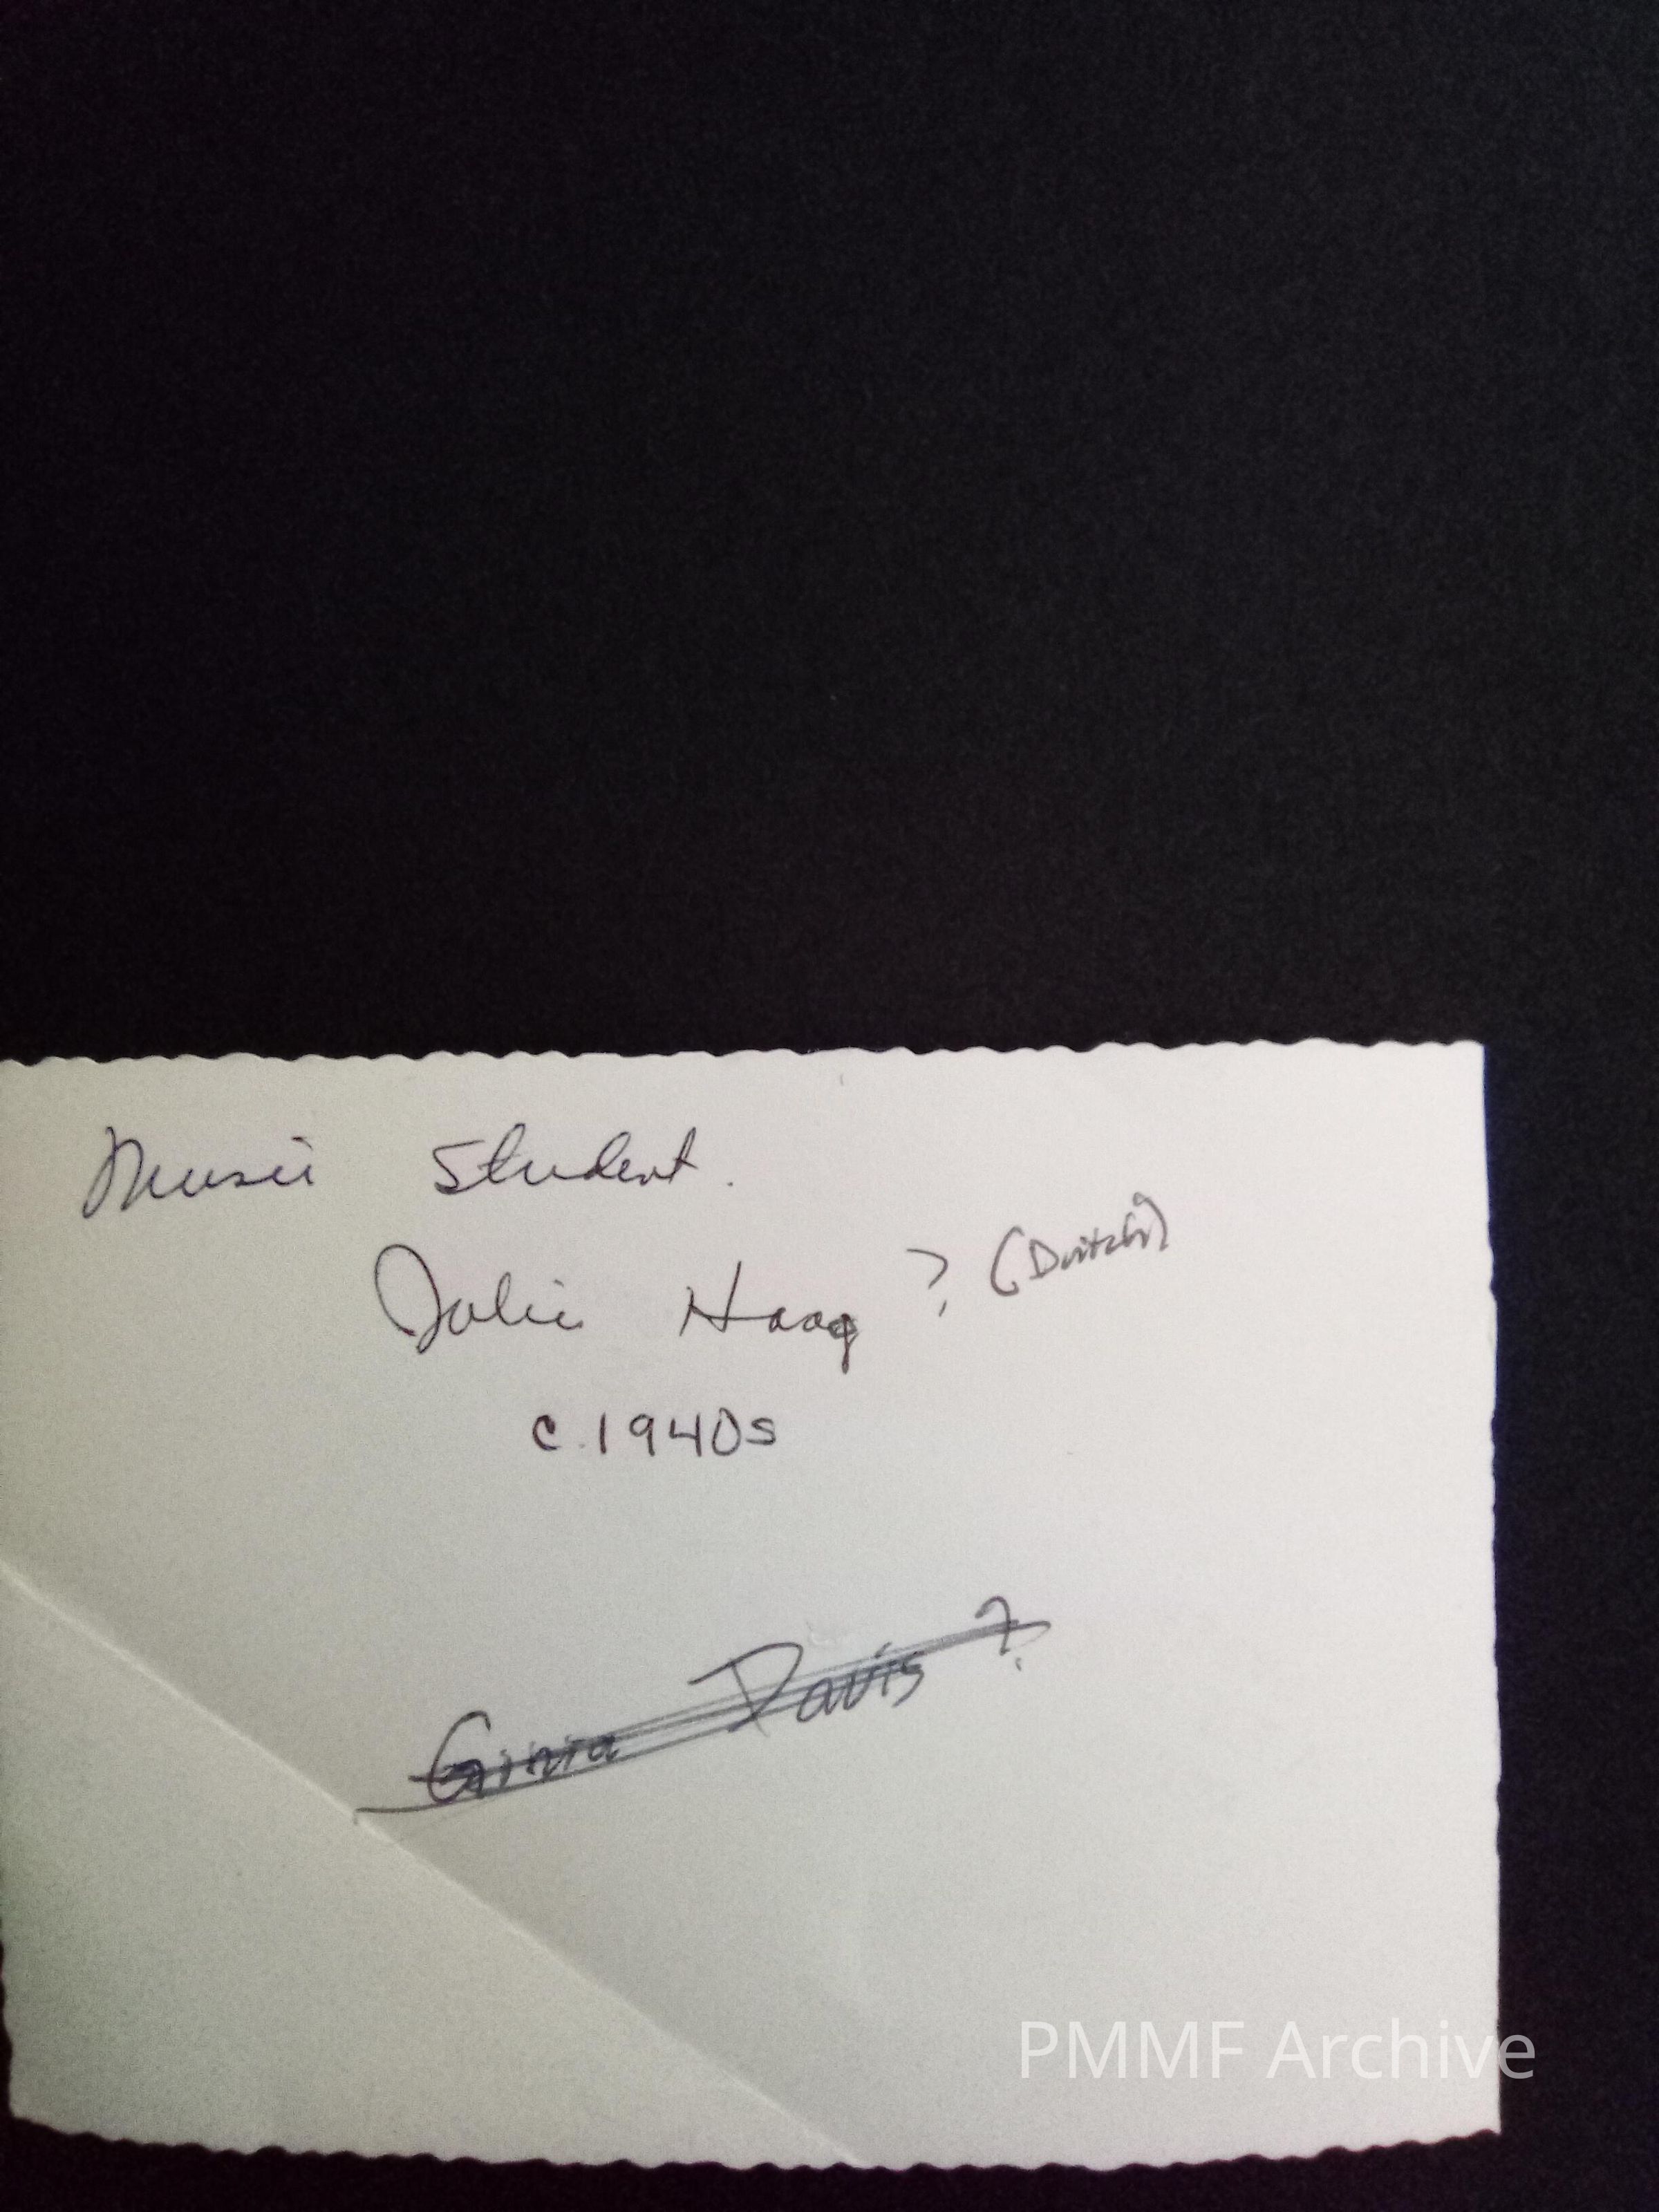 Music Student.
Julie Haag ?
c. 1940s
Ginia Davis ?
PMMF Archive